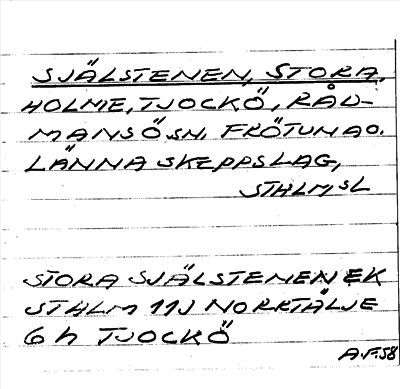 SJÄLSTENEN, STORA,
HOLME, TJOCKÖ, RÅD-
MANSÖ SN. FRÖTUNA O.
LÄNNA SKEPPSLAG,
STHLMSL
STORA SJÄLSTENEN EK
STHLM 11J NORRTÄLJE
6 h TJOCKÖ
A.F. 58